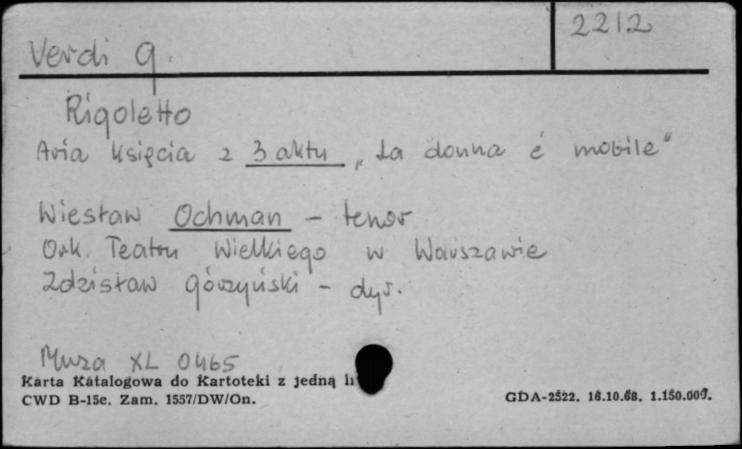 2212
Verdi G.
Rigoletto
Aria Księcia z 3 aktu „La donna é mobile"
Wiesław Ochman - tenor
Ork. Teatru Wielkiego w Warszawie
Zdzisław Górzyński - dyr.
Muza XL 0465
Karta Katalogowa do Kartoteki z jedną
CWD B-15c. Zam. 1557/DW/On.
GDA-2522. 16.10.68. 1.150.000.